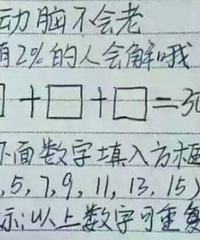 动脑不会老
有2%的人会解哦
□+□+□=30
下面数字填入方框
,5,7,9,11,13,15)
示:以上数字可重复